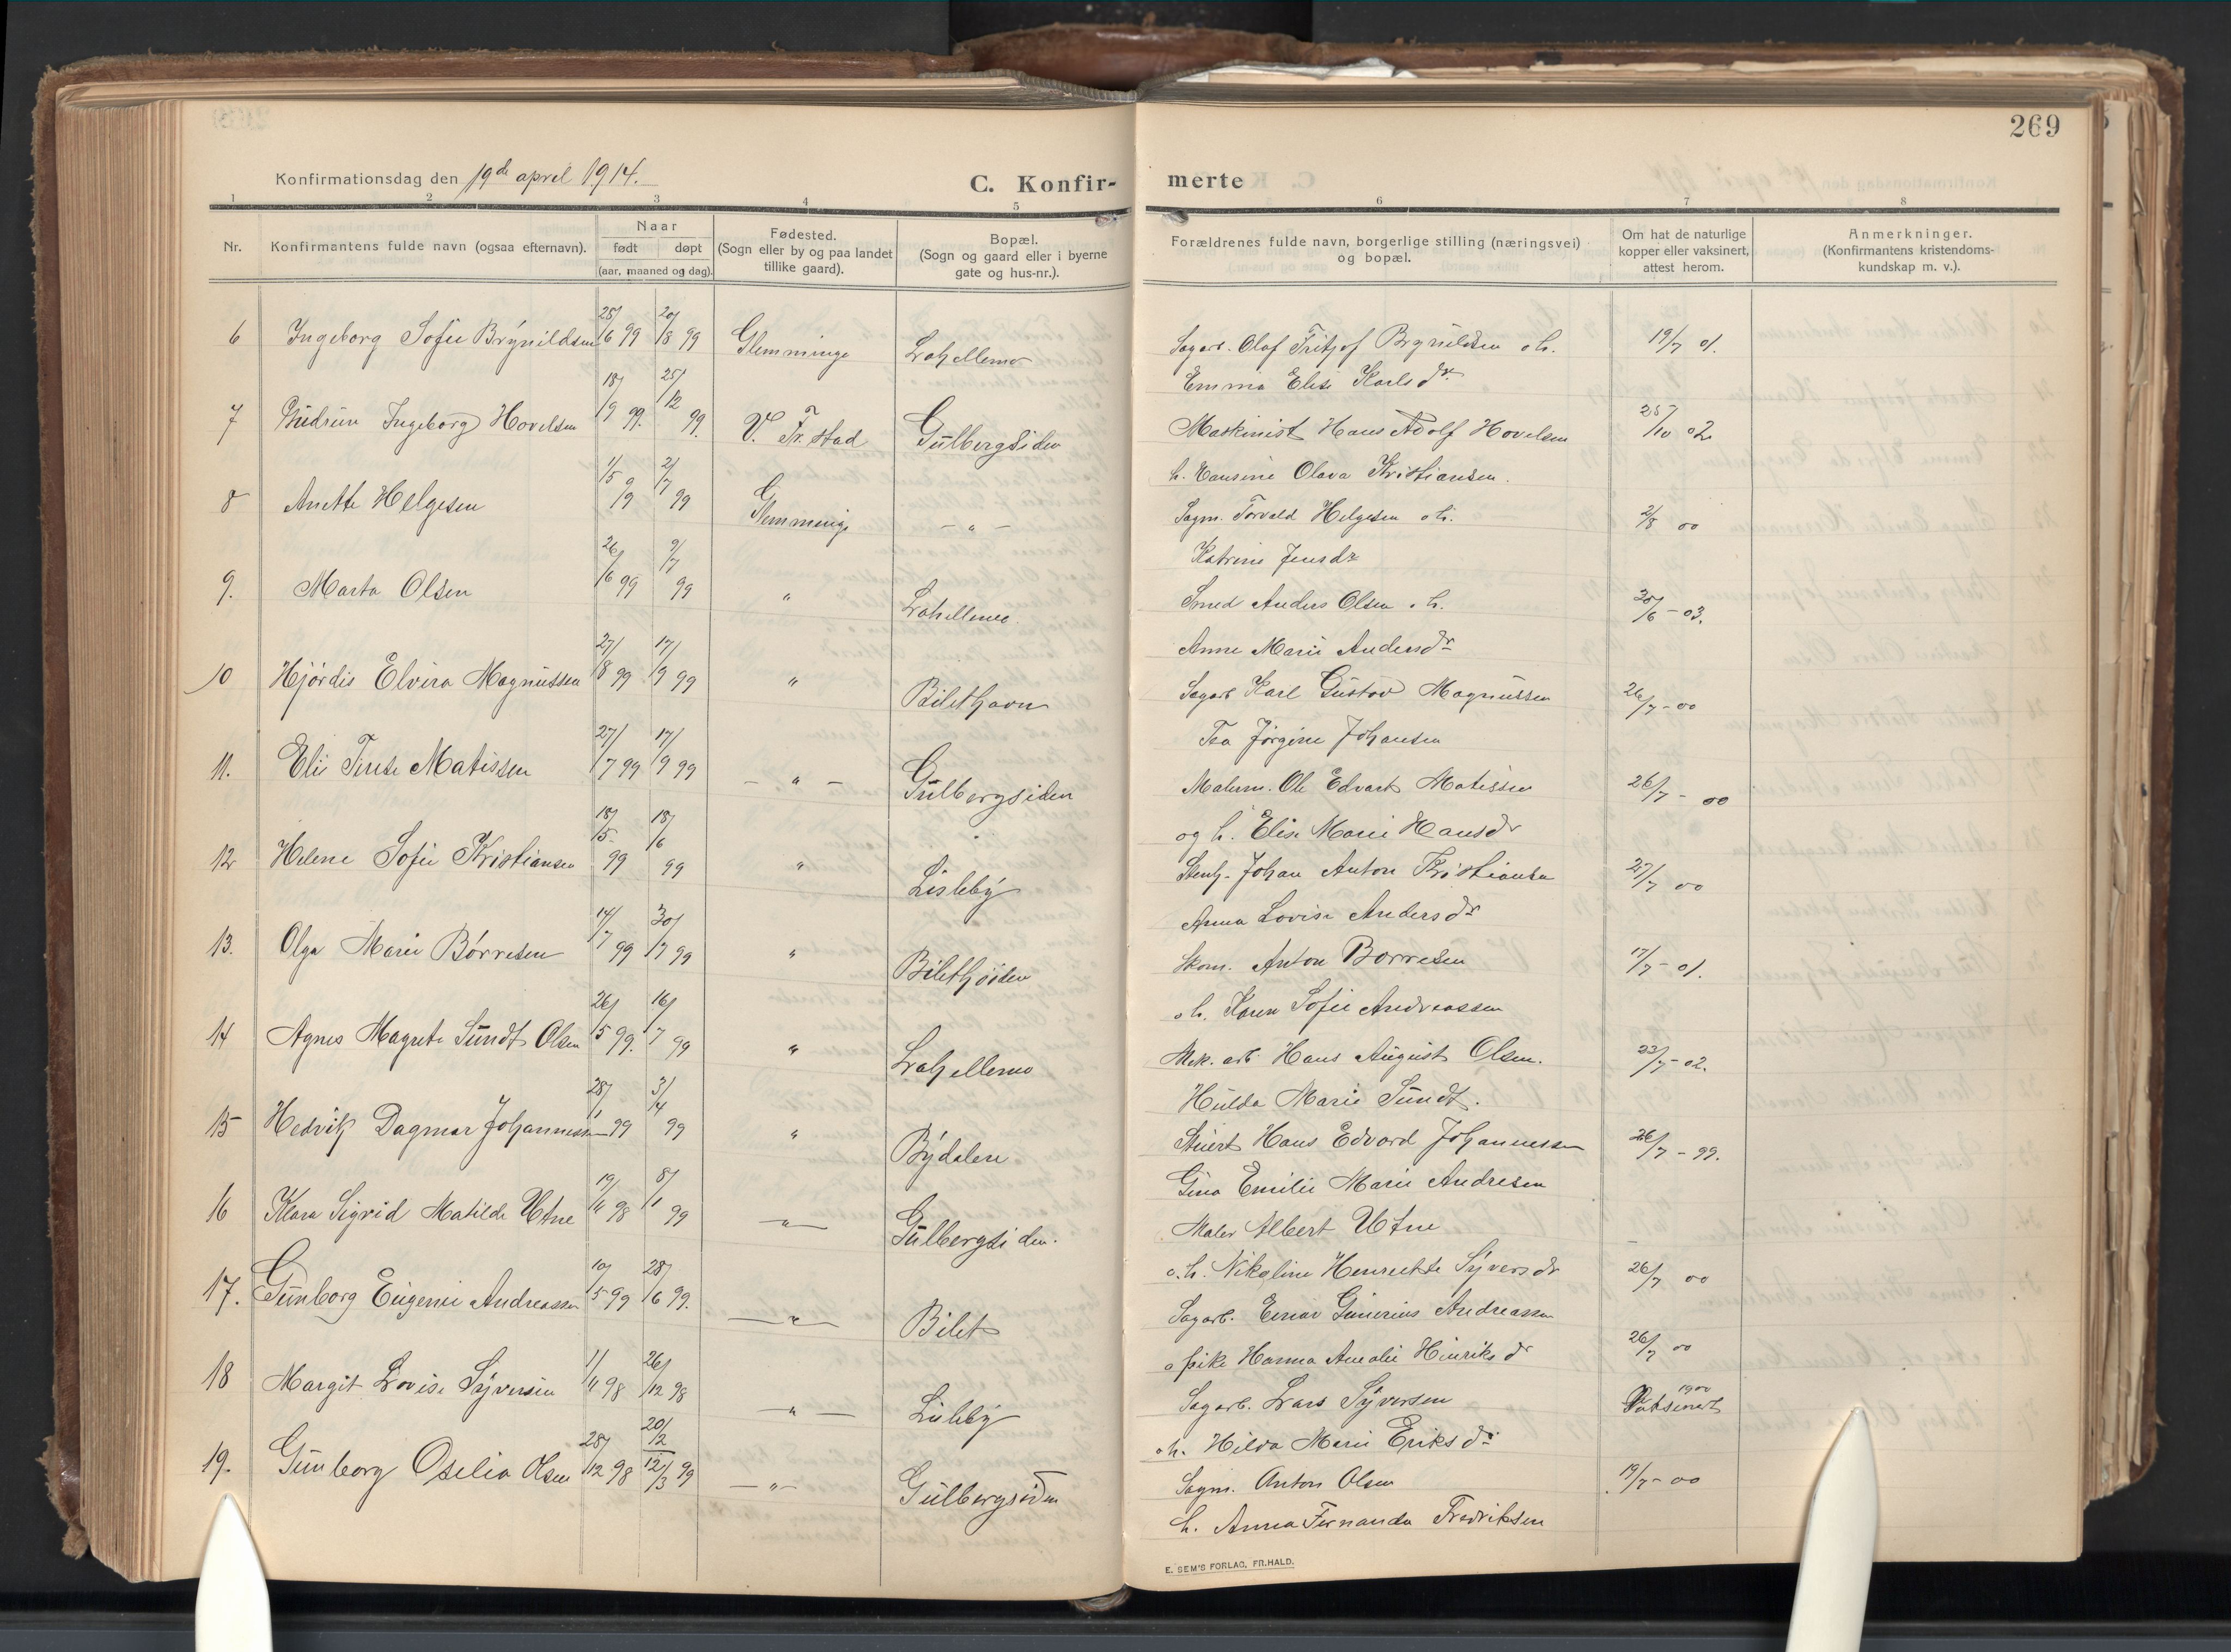 269
Konfirmationsdag den 19de april 1914.
C. Konfir-
merte
1 2 3 4 5 6 7 8
Nr.
Konfirmantens fulde navn (ogsaa efternavn).
Naar
født døpt
(aar, maaned og dag).
Fødested.
(Sogn eller by og paa landet
tillike gaard).
Bopæl.
(Sogn og gaard eller i byerne
gate og hus-nr.).
Forældrenes fulde navn, borgerlige stilling (næringsvei)
og bopæl.
Om hat de naturlige
kopper eller vaksinert,
attest herom.
Anmerkninger.
(Konfirmantens kristendoms-
kundskap m. v.).
6 Ingeborg Sofie Brynildsen 25/6 99 20/8 99 Glemminge Lahellemo Sagarb. Olaf Fritjof Brynildsen o h. 19/7 01.
Emma Elise Karlsdr.
7 Gudrun Ingeborg Hovelsen 18/9 99. 25/12 99. V. Fr.stad Gulbergsiden Maskinist Hans Adolf Hovelsen 25/10 02
h. Hansine Olava Kristiansen.
8 Anette Helgesen 1/5 99 2/7 99 Glemminge – " – Sagm. Torvald Helgesen o h. 2/8 00
Katrine Jensdr
9. Marta Olsen 26/6 99 9/7 99 " Lahellemo. Smed Anders Olsen o h. 30/6 – 03.
Anne Marie Andersdr
10 Hjørdis Elvira Magnussen 27/8 99 17/9 99 " Bilethavn Sagarb Karl Gustav Magnussen 26/7 – 00
Tea Jørgine Johansen
11. Eli Terese Matissen 27/7 99 17/9 99 – " – Gulbergsiden Malerm. Ole Edvart Matissen 26/7 – 00
og h. Elise Marie Hansdr
12 Helene Sofie Kristiansen 18/5 99 18/6 99 " Lisleby Stenh. Johan Anton Kristiansen 27/7 00
Anna Lovise Andersdr
13. Olga Marie Børresen 14/7 99 30/7 99 " Bilethøiden Skom. Anton Børresen 17/7 – 01.
o h. Karen Sofie Andreassen
14 Agnes Magrete Sundt Olsen 26/5 99. 16/7 99 " Lahellemo Mek. arb Hans August Olsen. 23/7 – 02.
Hulda Marie Sundt.
15 Hedvik Dagmar Johannessen 28/1 – 99 3/4 99 " Bydalen Stuert Hans Edvard Johannessen 26/7 – 99.
Gina Emilie Marie Andresen
16 Klara Sigrid Matilde Utne 19/11 98 8/1 99 – " – Gulbergsiden. Maler Albert Utne
o. h. Nikoline Henriette Syversdr 26/7 00
17. Gunborg Eugenie Andreassen 10/5 99 28/6 99. – " – Bilet Sagarb. Einar Gunerius Andreassen
o pike Hanna Amalie Hinriksdr 26/7 00
18 Margit Lovise Syversen 1/11 98 26/12 98 – " – Lisleby Sagarb. Lars Syversen Vaksinert 1900
o h. Hilda Marie Eriksdr.
19. Gunborg Oselia Olsen 28/12 98 20/2 12/3 99 – " – Gulbergsiden Sagm. Anton Olsen 19/7 – 00
h. Anna Fernanda Fredriksen
E. SEM'S FORLAG, FR.HALD.